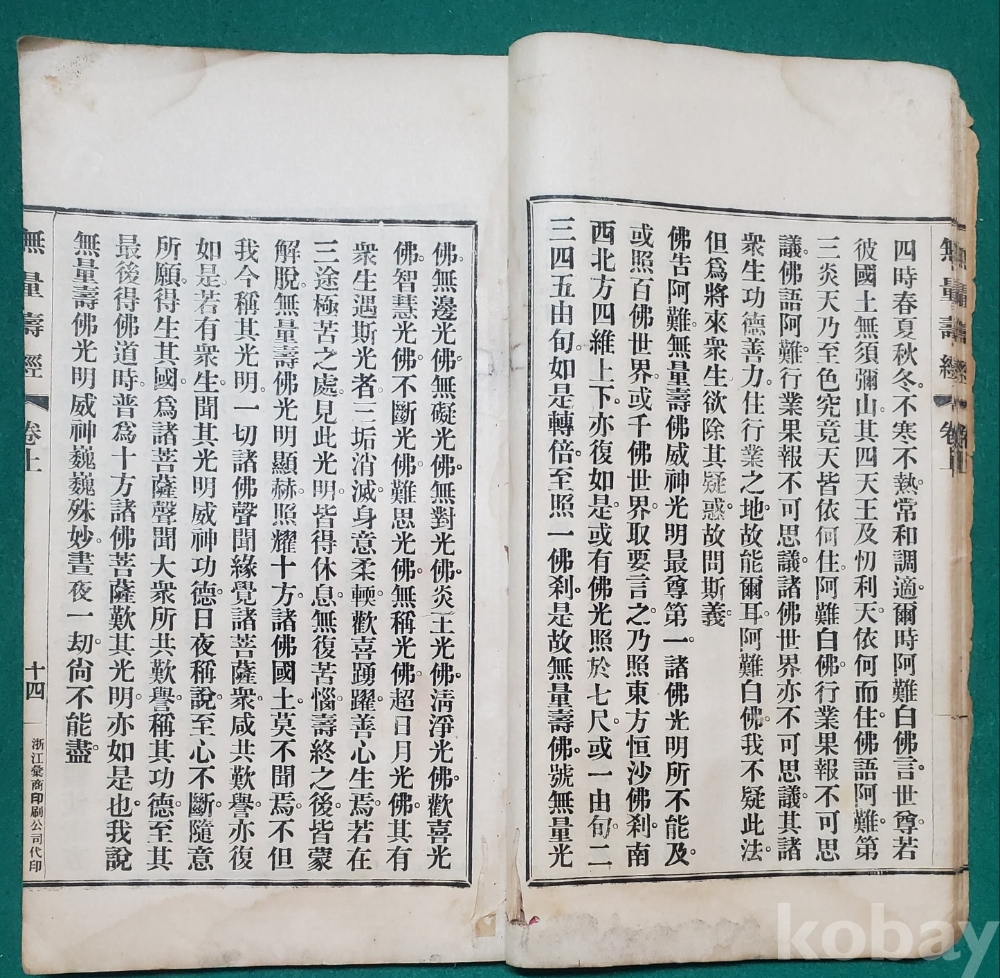 無量壽經 卷上
四時春夏秋冬。不寒不熱。常和調適。爾時阿難白佛言。世尊。若
彼國土無須彌山。其四天王及忉利天。依何而住。佛語阿難。第
三炎天。乃至色究竟天。皆依何住。阿難白佛。行業果報不可思
議。佛語阿難。行業果報不可思議。諸佛世界亦不可思議。其諸
衆生功德善力。住行業之地。故能爾耳。阿難白佛。我不疑此法。
但爲將來衆生。欲除其疑惑。故問斯義
佛告阿難。無量壽佛威神光明最尊第一。諸佛光明所不能及。
或照百佛世界。或千佛世界。取要言之。乃照東方恒沙佛刹。南
西北方。四維上下。亦復如是。或有佛光照於七尺。或一由旬。二
三四五由旬。如是轉倍。至照一佛刹。是故無量壽佛。號無量光
佛。無邊光佛。無礙光佛。無對光佛。炎王光佛。淸淨光佛。歡喜光
佛。智慧光佛。不斷光佛。難思光佛。無稱光佛。超日月光佛。其有
衆生遇斯光者。三垢消滅。身意柔輭。歡喜踴躍。善心生焉。若在
三途極苦之處。見此光明。皆得休息。無復苦惱。壽終之後。皆蒙
解脫。無量壽佛光明顯赫。照耀十方。諸佛國土莫不聞焉。不但
我今稱其光明。一切諸佛聲聞緣覺諸菩薩衆。咸共歎譽。亦復
如是。若有衆生聞其光明威神功德。日夜稱說。至心不斷。隨意
所願。得生其國。爲諸菩薩聲聞大衆。所共歎譽。稱其功德。至其
最後得佛道時。普爲十方諸佛菩薩。歎其光明。亦如是也。我說
無量壽佛光明威神。巍巍殊妙。晝夜一劫。尙不能盡。
無量壽經 卷上 十四 浙江彙商印刷公司代印
kobay